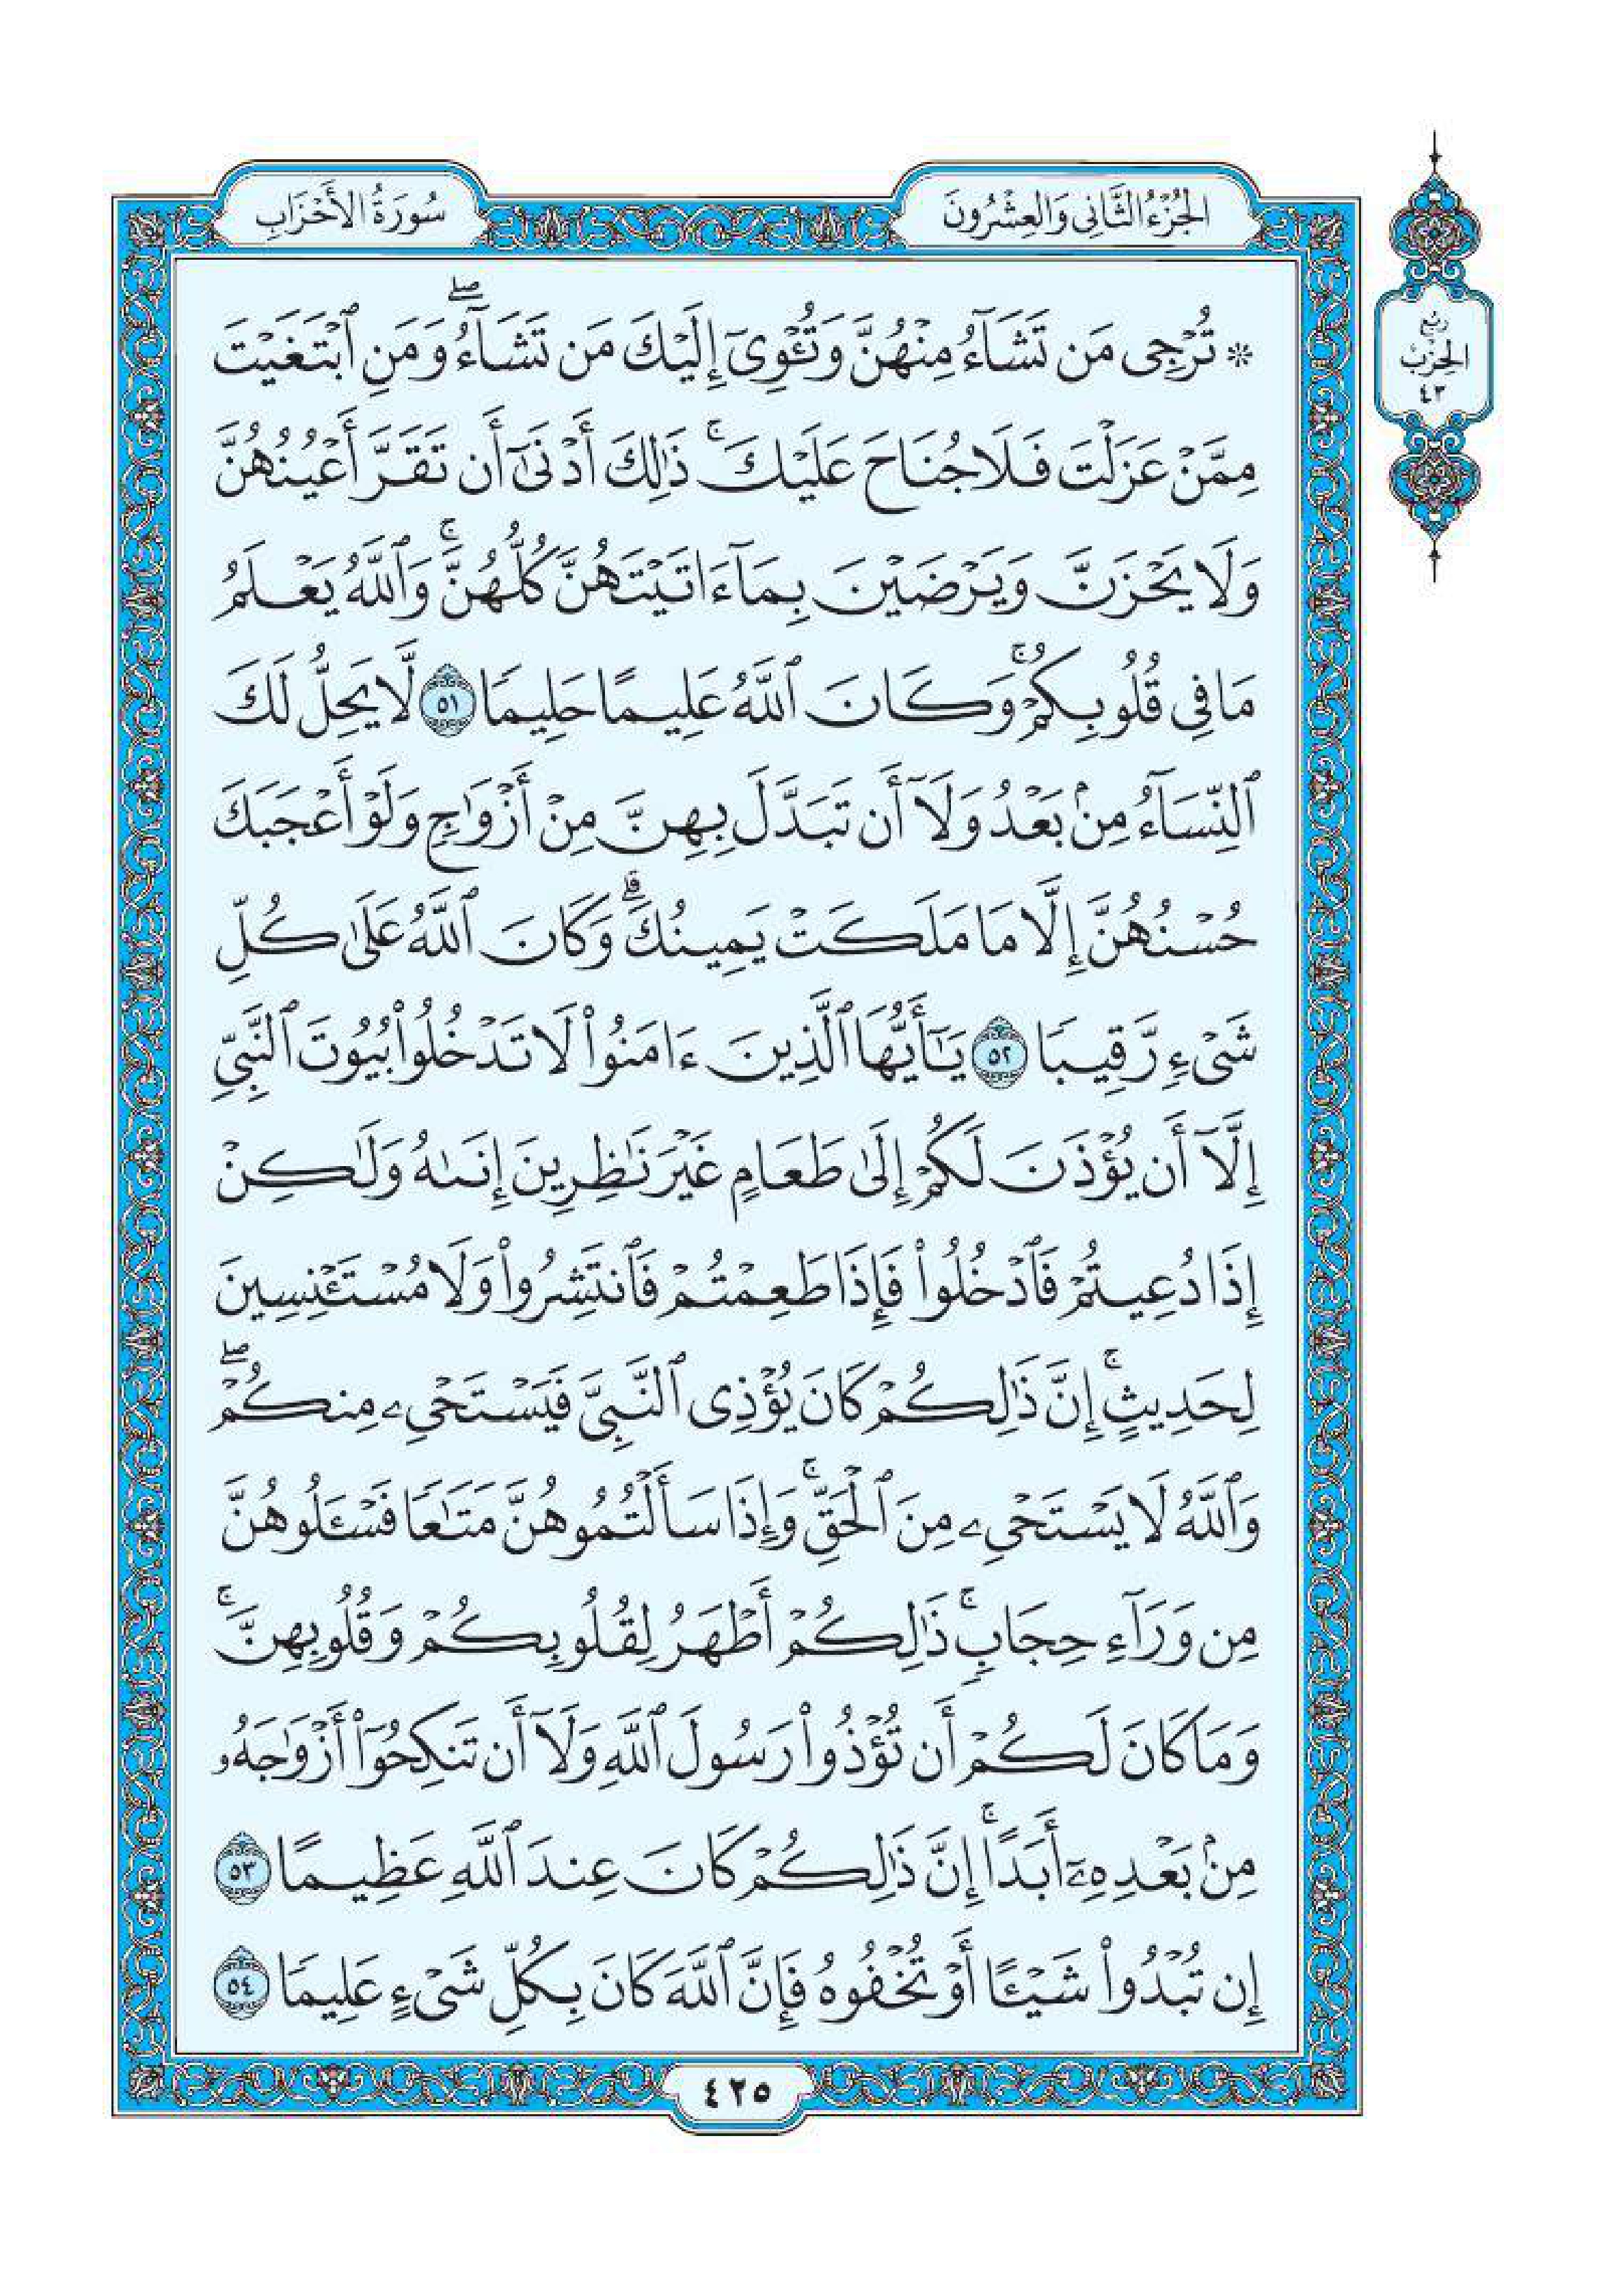 الجُزْءُ الثَّانِي وَالعِشْرُونَ
سُورَةُ الأَحْزَابِ
رُبْع
الحِزْب
٤٣
۞ تُرْجِى مَن تَشَآءُ مِنْهُنَّ وَتُـْٔوِىٓ إِلَيْكَ مَن تَشَآءُۖ وَمَنِ ٱبْتَغَيْتَ
مِمَّنْ عَزَلْتَ فَلَا جُنَاحَ عَلَيْكَۚ ذَٰلِكَ أَدْنَىٰٓ أَن تَقَرَّ أَعْيُنُهُنَّ
وَلَا يَحْزَنَّ وَيَرْضَيْنَ بِمَآ ءَاتَيْتَهُنَّ كُلُّهُنَّۚ وَٱللَّهُ يَعْلَمُ
مَا فِى قُلُوبِكُمْۚ وَكَانَ ٱللَّهُ عَلِيمًا حَلِيمًا ٥١ لَّا يَحِلُّ لَكَ
ٱلنِّسَآءُ مِنۢ بَعْدُ وَلَآ أَن تَبَدَّلَ بِهِنَّ مِنْ أَزْوَٰجٍ وَلَوْ أَعْجَبَكَ
حُسْنُهُنَّ إِلَّا مَا مَلَكَتْ يَمِينُكَۗ وَكَانَ ٱللَّهُ عَلَىٰ كُلِّ
شَىْءٍ رَّقِيبًا ٥٢ يَـٰٓأَيُّهَا ٱلَّذِينَ ءَامَنُوا۟ لَا تَدْخُلُوا۟ بُيُوتَ ٱلنَّبِىِّ
إِلَّآ أَن يُؤْذَنَ لَكُمْ إِلَىٰ طَعَامٍ غَيْرَ نَـٰظِرِينَ إِنَىٰهُ وَلَـٰكِنْ
إِذَا دُعِيتُمْ فَٱدْخُلُوا۟ فَإِذَا طَعِمْتُمْ فَٱنتَشِرُوا۟ وَلَا مُسْتَـْٔنِسِينَ
لِحَدِيثٍۚ إِنَّ ذَٰلِكُمْ كَانَ يُؤْذِى ٱلنَّبِىَّ فَيَسْتَحْىِۦ مِنكُمْۖ
وَٱللَّهُ لَا يَسْتَحْىِۦ مِنَ ٱلْحَقِّۚ وَإِذَا سَأَلْتُمُوهُنَّ مَتَـٰعًا فَسْـَٔلُوهُنَّ
مِن وَرَآءِ حِجَابٍۚ ذَٰلِكُمْ أَطْهَرُ لِقُلُوبِكُمْ وَقُلُوبِهِنَّۚ
وَمَا كَانَ لَكُمْ أَن تُؤْذُوا۟ رَسُولَ ٱللَّهِ وَلَآ أَن تَنكِحُوٓا۟ أَزْوَٰجَهُۥ
مِنۢ بَعْدِهِۦٓ أَبَدًاۚ إِنَّ ذَٰلِكُمْ كَانَ عِندَ ٱللَّهِ عَظِيمًا ٥٣
إِن تُبْدُوا۟ شَيْـًٔا أَوْ تُخْفُوهُ فَإِنَّ ٱللَّهَ كَانَ بِكُلِّ شَىْءٍ عَلِيمًا ٥٤
٤٢٥